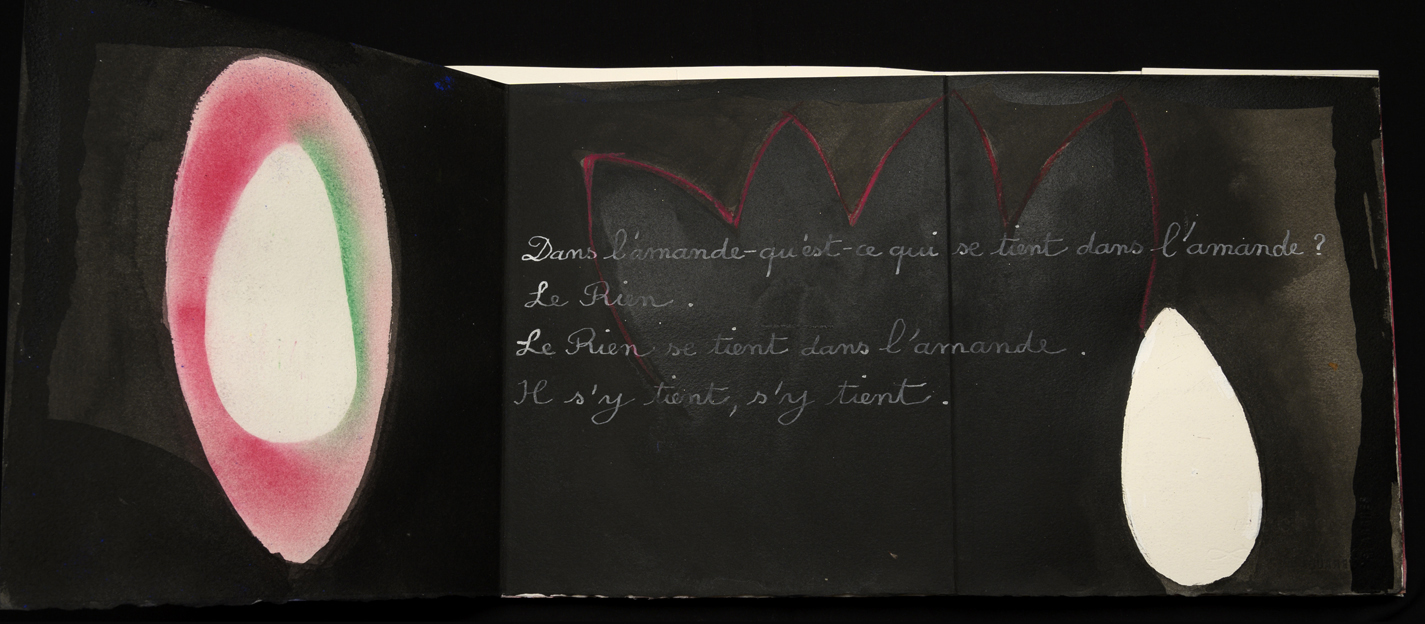 Dans l'amande-qu'est-ce qui se tient dans l'amande?
Le Rien.
Le Rien se tient dans l'amande.
Il s'y tient, s'y tient.